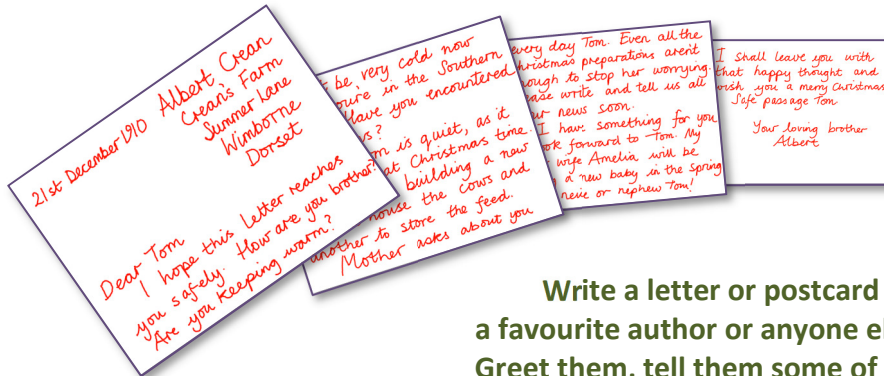 21st December 1910
Albert Crean
Crean's Farm
Summer Lane
Wimborne
Dorset
Dear Tom
I hope this letter reaches
you safely. How are you brother?
Are you keeping warm?
be, very cold now
you're in the Southern
Have you encountered
is quiet, as it
at Christmas time.
building a new
house the cows and
another to store the feed.
Mother asks about you
every day Tom. Even all the
Christmas preparations aren't
enough to stop her worrying.
Please write and tell us all
your news soon.
I have something for you
look forward to Tom. My
wife Amelia will be
a new baby in the Spring
neice or nephew Tom!
I shall leave you with
that happy thought and
wish you a merry Christmas
Safe passage Tom
Your loving brother
Albert
Write a letter or postcard
a favourite author or anyone
Greet them, tell them some of